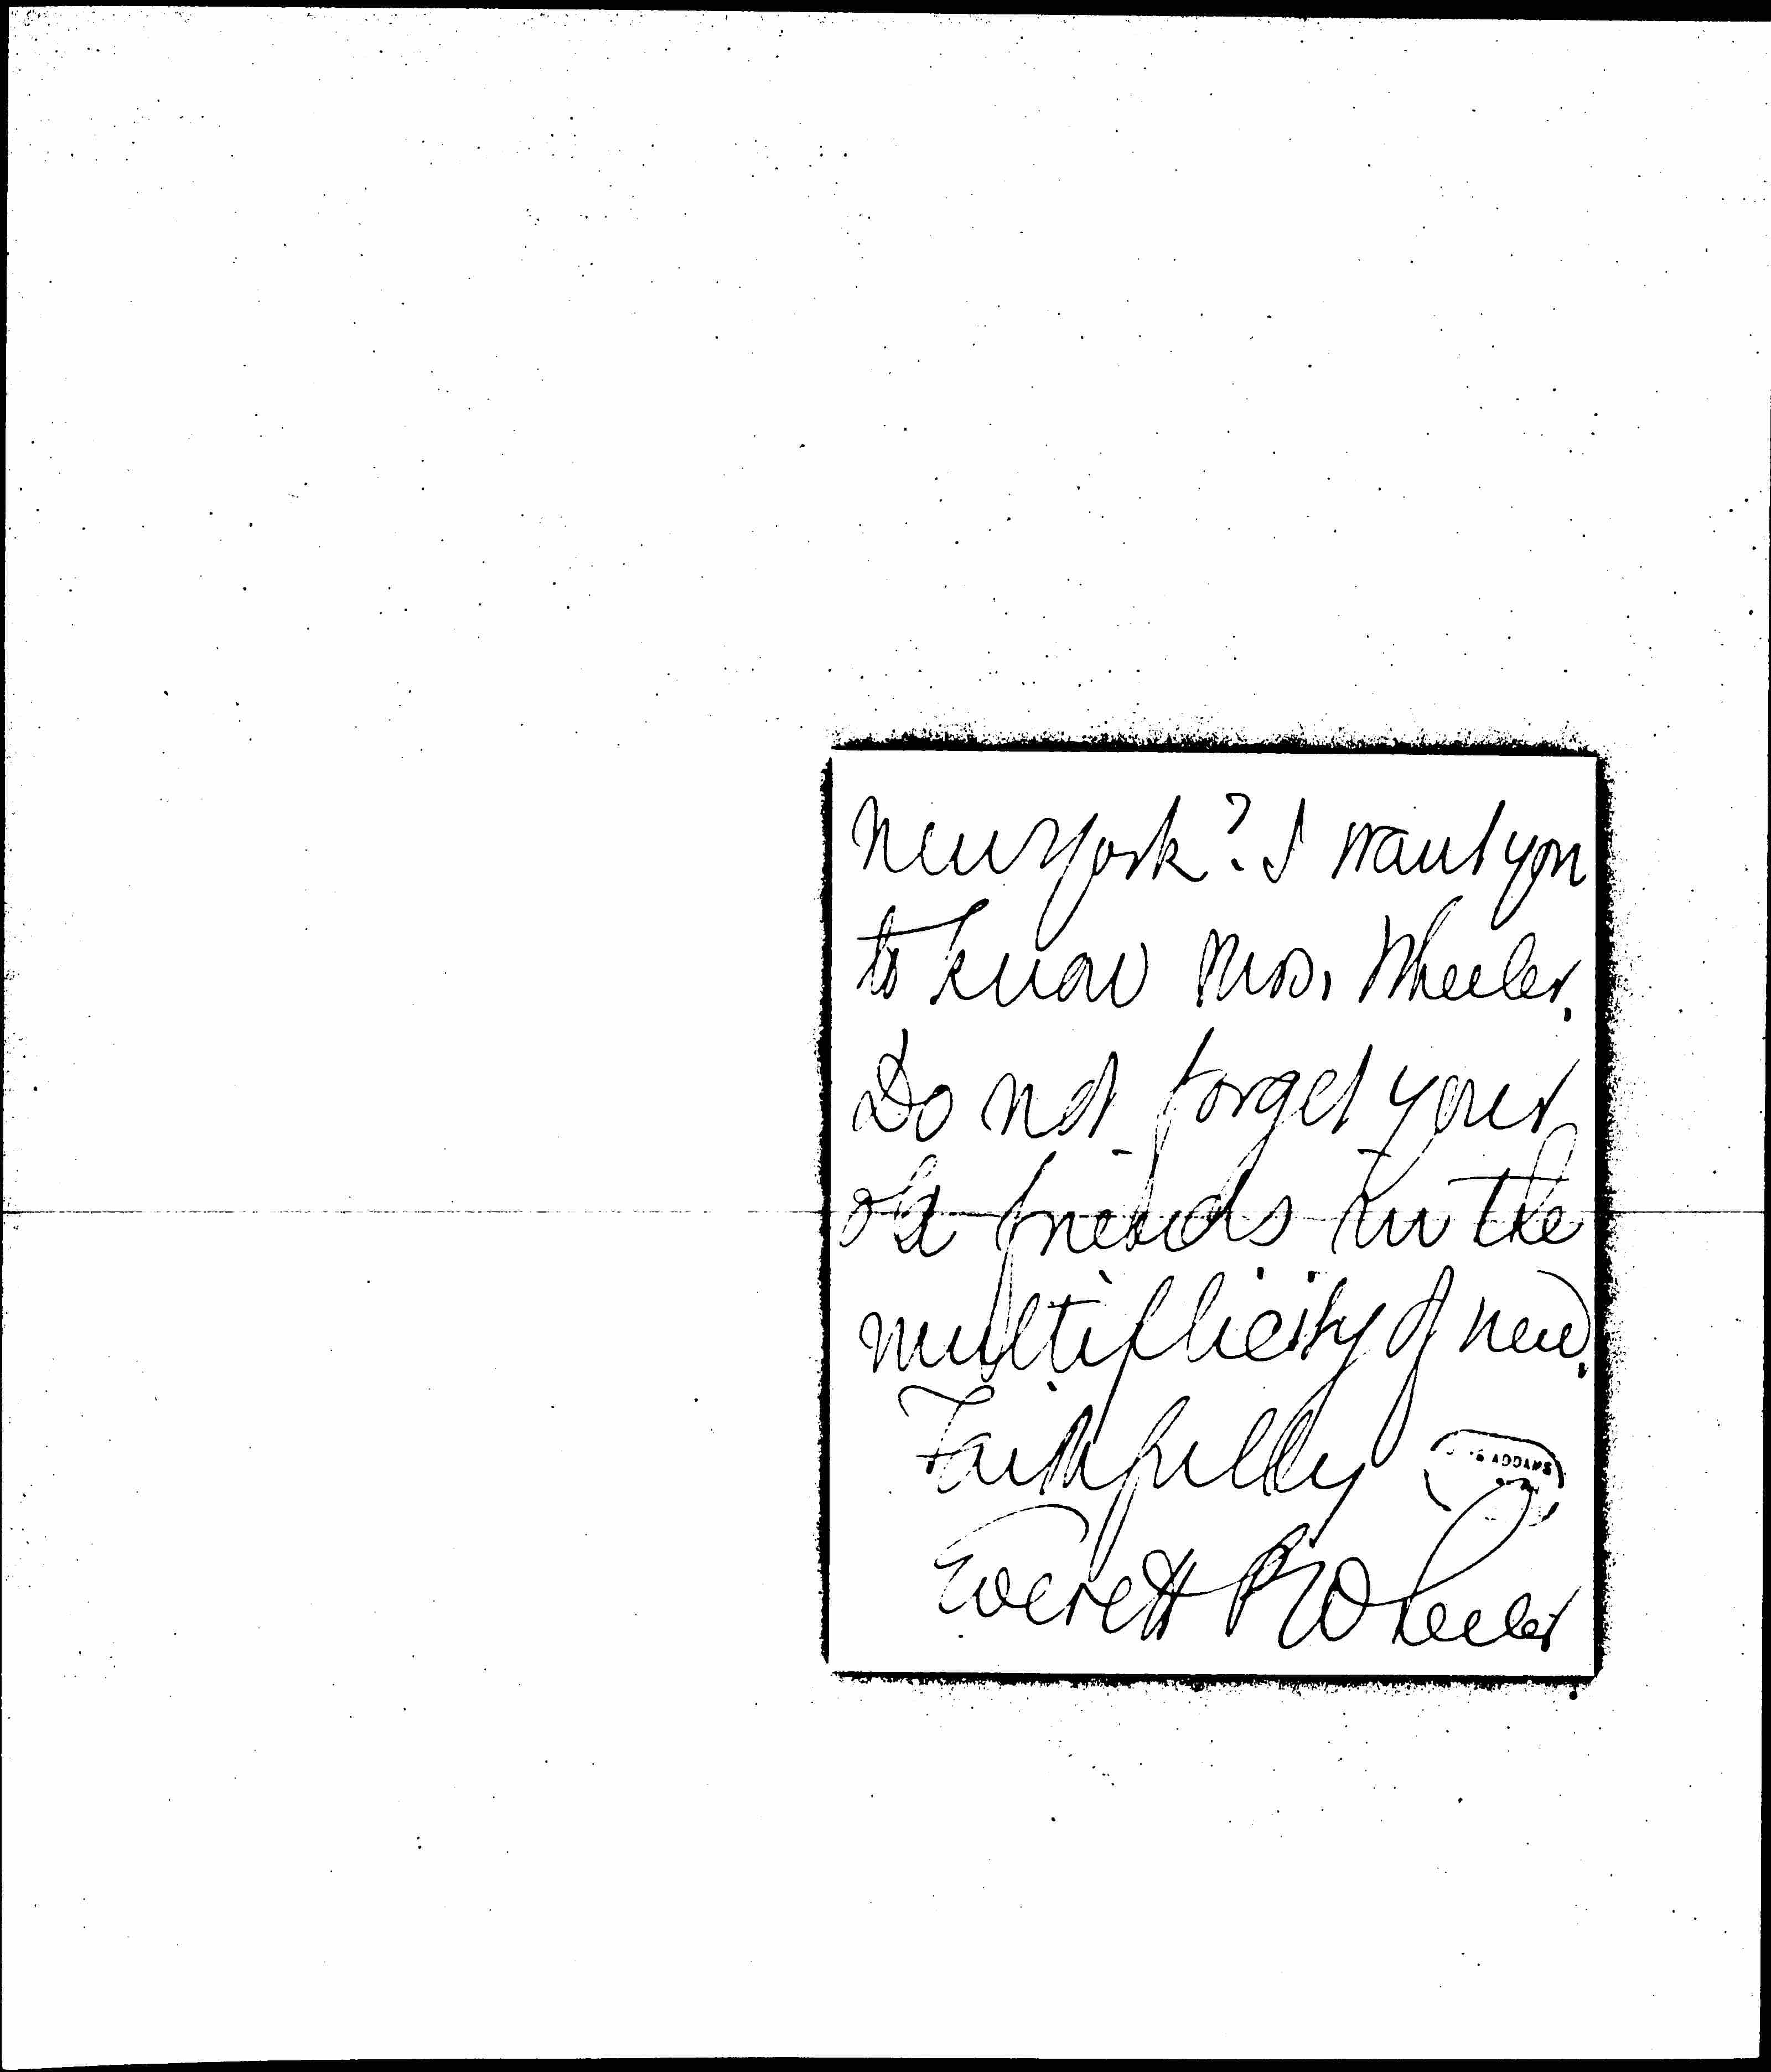 New York? I want you
to know Mrs. Wheeler.
Do not forget your
old friends in the
multiplicity of new.
Faithfully
ADDAMS
Everett P Wheeler